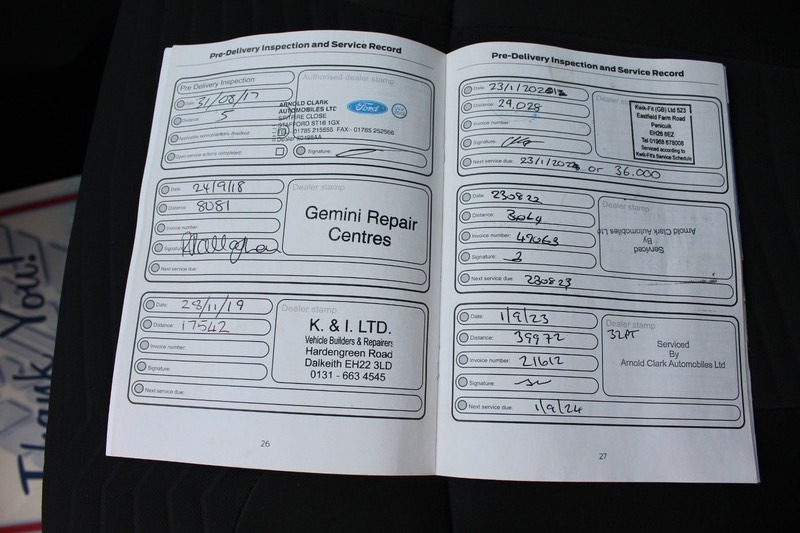 Pre-Delivery Inspection and Service Record
Pre Delivery Inspection
Authorised dealer stamp
Date: 31/08/17
Distance: 5
Applicable environments checked:
Open service actions completed:
ARNOLD CLARK
AUTOMOBILES LTD
SPITFIRE CLOSE
STAFFORD ST16 1GX
01785 215555 FAX:- 01785 252566
Ford
Signature:
Date: 24/9/18
Distance: 8081
Invoice number:
Signature:
Next service due:
Dealer stamp
Gemini Repair
Centres
Date: 28/11/19
Distance: 17542
Invoice number:
Signature:
Next service due:
Dealer stamp
K. & I. LTD.
Vehicle Builders & Repairers
Hardengreen Road
Dalkeith EH22 3LD
0131 - 663 4545
26
Pre-Delivery Inspection and Service Record
Date: 23/1/202
Distance: 29,028
Invoice number:
Signature:
Next service due: 23/1/202 or 36.000
Dealer stamp
Kwik-Fit (GB) Ltd 523
Eastfield Farm Road
Penicuik
EH26 8EZ
Tel 01968 678008
Serviced according to
Kwik-Fit's Service Schedule
Date: 230822
Distance:
Invoice number: 49063
Signature:
Next service due: 230823
Dealer stamp
Serviced
By
Arnold Clark Automobiles Ltd
Date: 1/9/23
Distance: 39972
Invoice number: 21612
Signature:
Next service due: 1/9/24
Dealer stamp
32PT
Serviced
By
Arnold Clark Automobiles Ltd
27
Thank You!